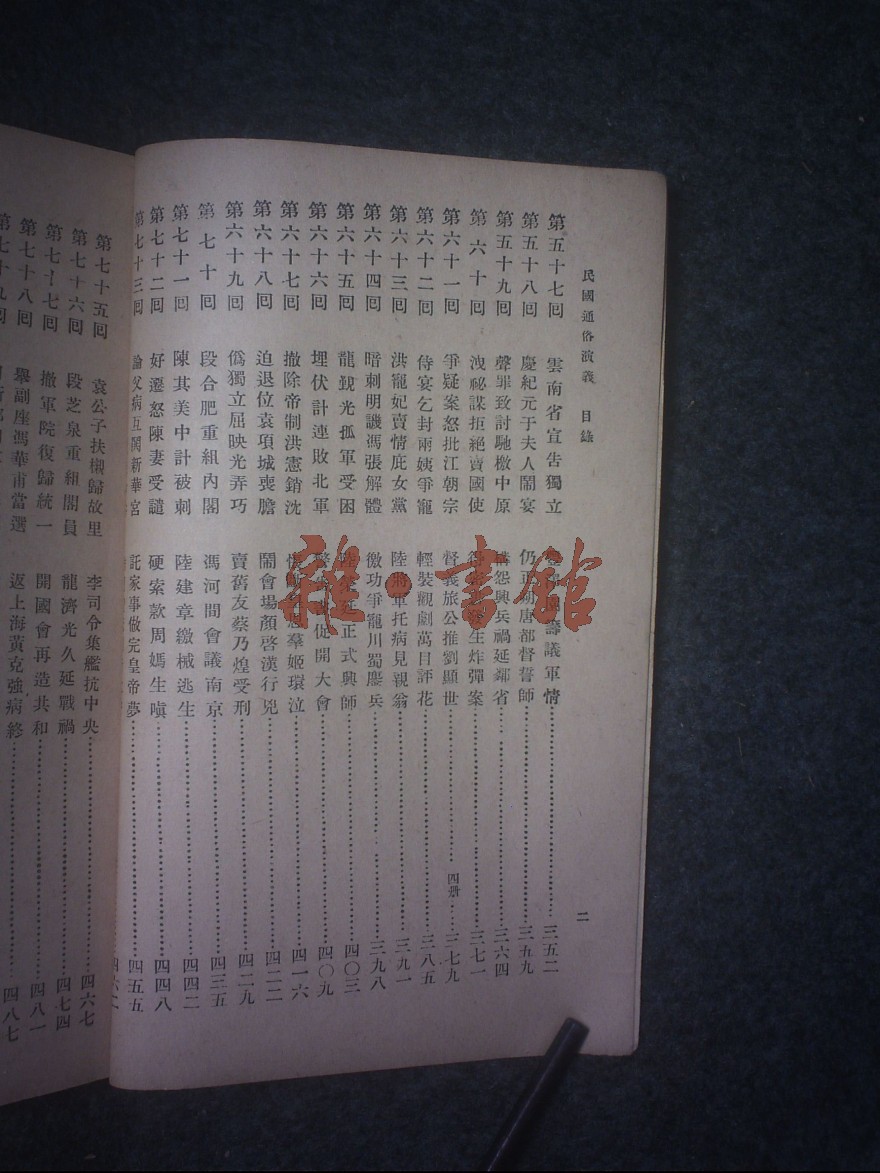 民國通俗演義 目錄
二
第五十七回 雲南省宣告獨立 籌議軍情 三五二
第五十八回 慶紀元于夫人鬧宴 仍正朔唐都督誓師 三五九
第五十九回 聲罪致討馳檄中原 構怨興兵禍延鄰省 三六四
第六十回 洩祕謀拒絕賣國使 炸彈案 三七一
第六十一回 爭疑案怒批江朝宗 督義旅公推劉顯世 四册 三七九
第六十二回 侍宴乞封兩姨爭寵 輕裝觀劇萬目評花 三八五
第六十三回 洪寵妃賣情庇女黨 陸將軍托病見親翁 三九一
第六十四回 暗刺明譏馮張解體 徼功爭寵川蜀鏖兵 三九八
第六十五回 龍覲光孤軍受困 正式興師 四〇三
第六十六回 埋伏計連敗北軍 促開大會 四〇九
第六十七回 撤除帝制洪憲銷沈 羣姬環泣 四一六
第六十八回 迫退位袁項城喪膽 鬧會場顏啓漢行兇 四二二
第六十九回 僞獨立屈映光弄巧 賣舊友蔡乃煌受刑 四二九
第七十回 段合肥重組內閣 馮河間會議南京 四三五
第七十一回 陳其美中計被刺 陸建章繳械逃生 四四二
第七十二回 好遷怒陳妻受譴 硬索款周媽生嗔 四四八
第七十三回 論父病互鬨新華宮 託家事做完皇帝夢 四五五
四六二
第七十五回 袁公子扶櫬歸故里 李司令集艦抗中央 四六七
第七十六回 段芝泉重組閣員 龍濟光久延戰禍 四七四
第七十七回 撤軍院復歸統一 開國會再造共和 四八一
第七十八回 舉副座馮華甫當選 返上海黃克強病終 四八七
第七十九回
雜·書館